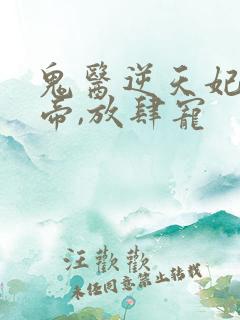 鬼醫逆天妃
帝,放肆寵
汪歡歡
未经同意禁止转载